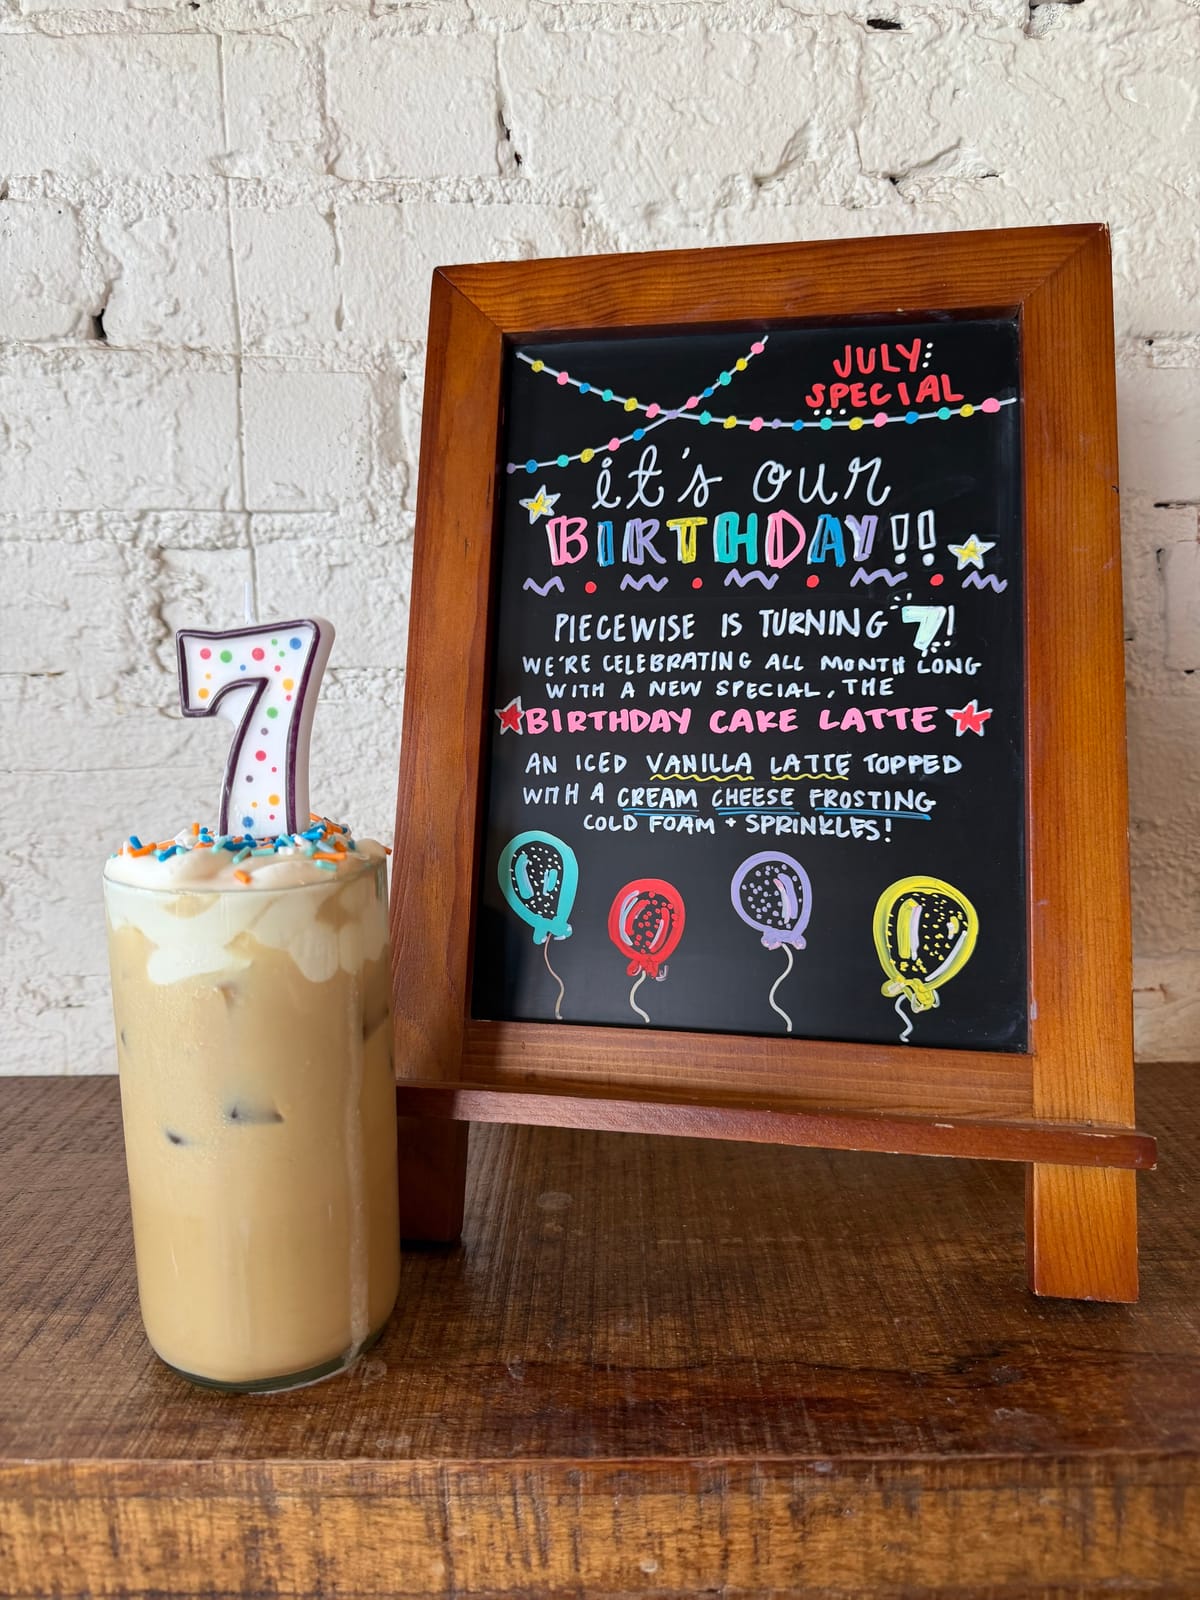 7
JULY:
SPECIAL
it's our
BIRTHDAY!!
PIECEWISE IS TURNING 7!
WE'RE CELEBRATING ALL MONTH LONG
WITH A NEW SPECIAL, THE
BIRTHDAY CAKE LATTE
AN ICED VANILLA LATTE TOPPED
WITH A CREAM CHEESE FROSTING
COLD FOAM + SPRINKLES!